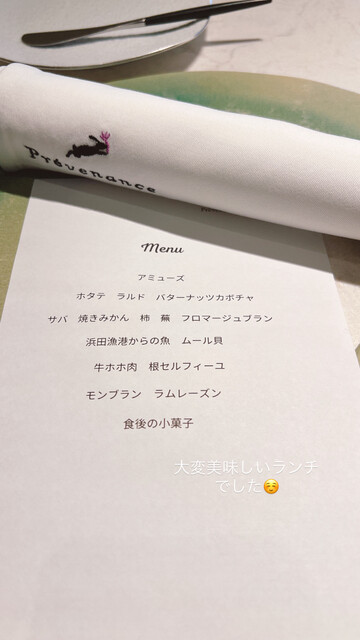 Prévenance
Menu
アミューズ
ホタテ　ラルド　バターナッツカボチャ
サバ　焼きみかん　柿　蕪　フロマージュブラン
浜田漁港からの魚　ムール貝
牛ホホ肉　根セルフィーユ
モンブラン　ラムレーズン
食後の小菓子
大変美味しいランチ
でした☺️